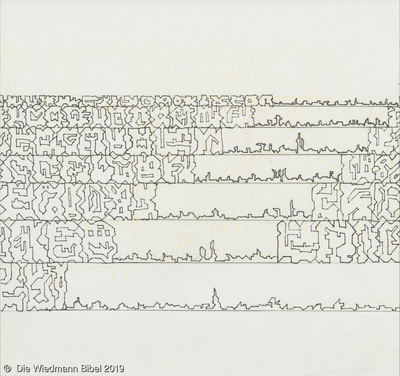 © Die Wiedmann Bibel 2019